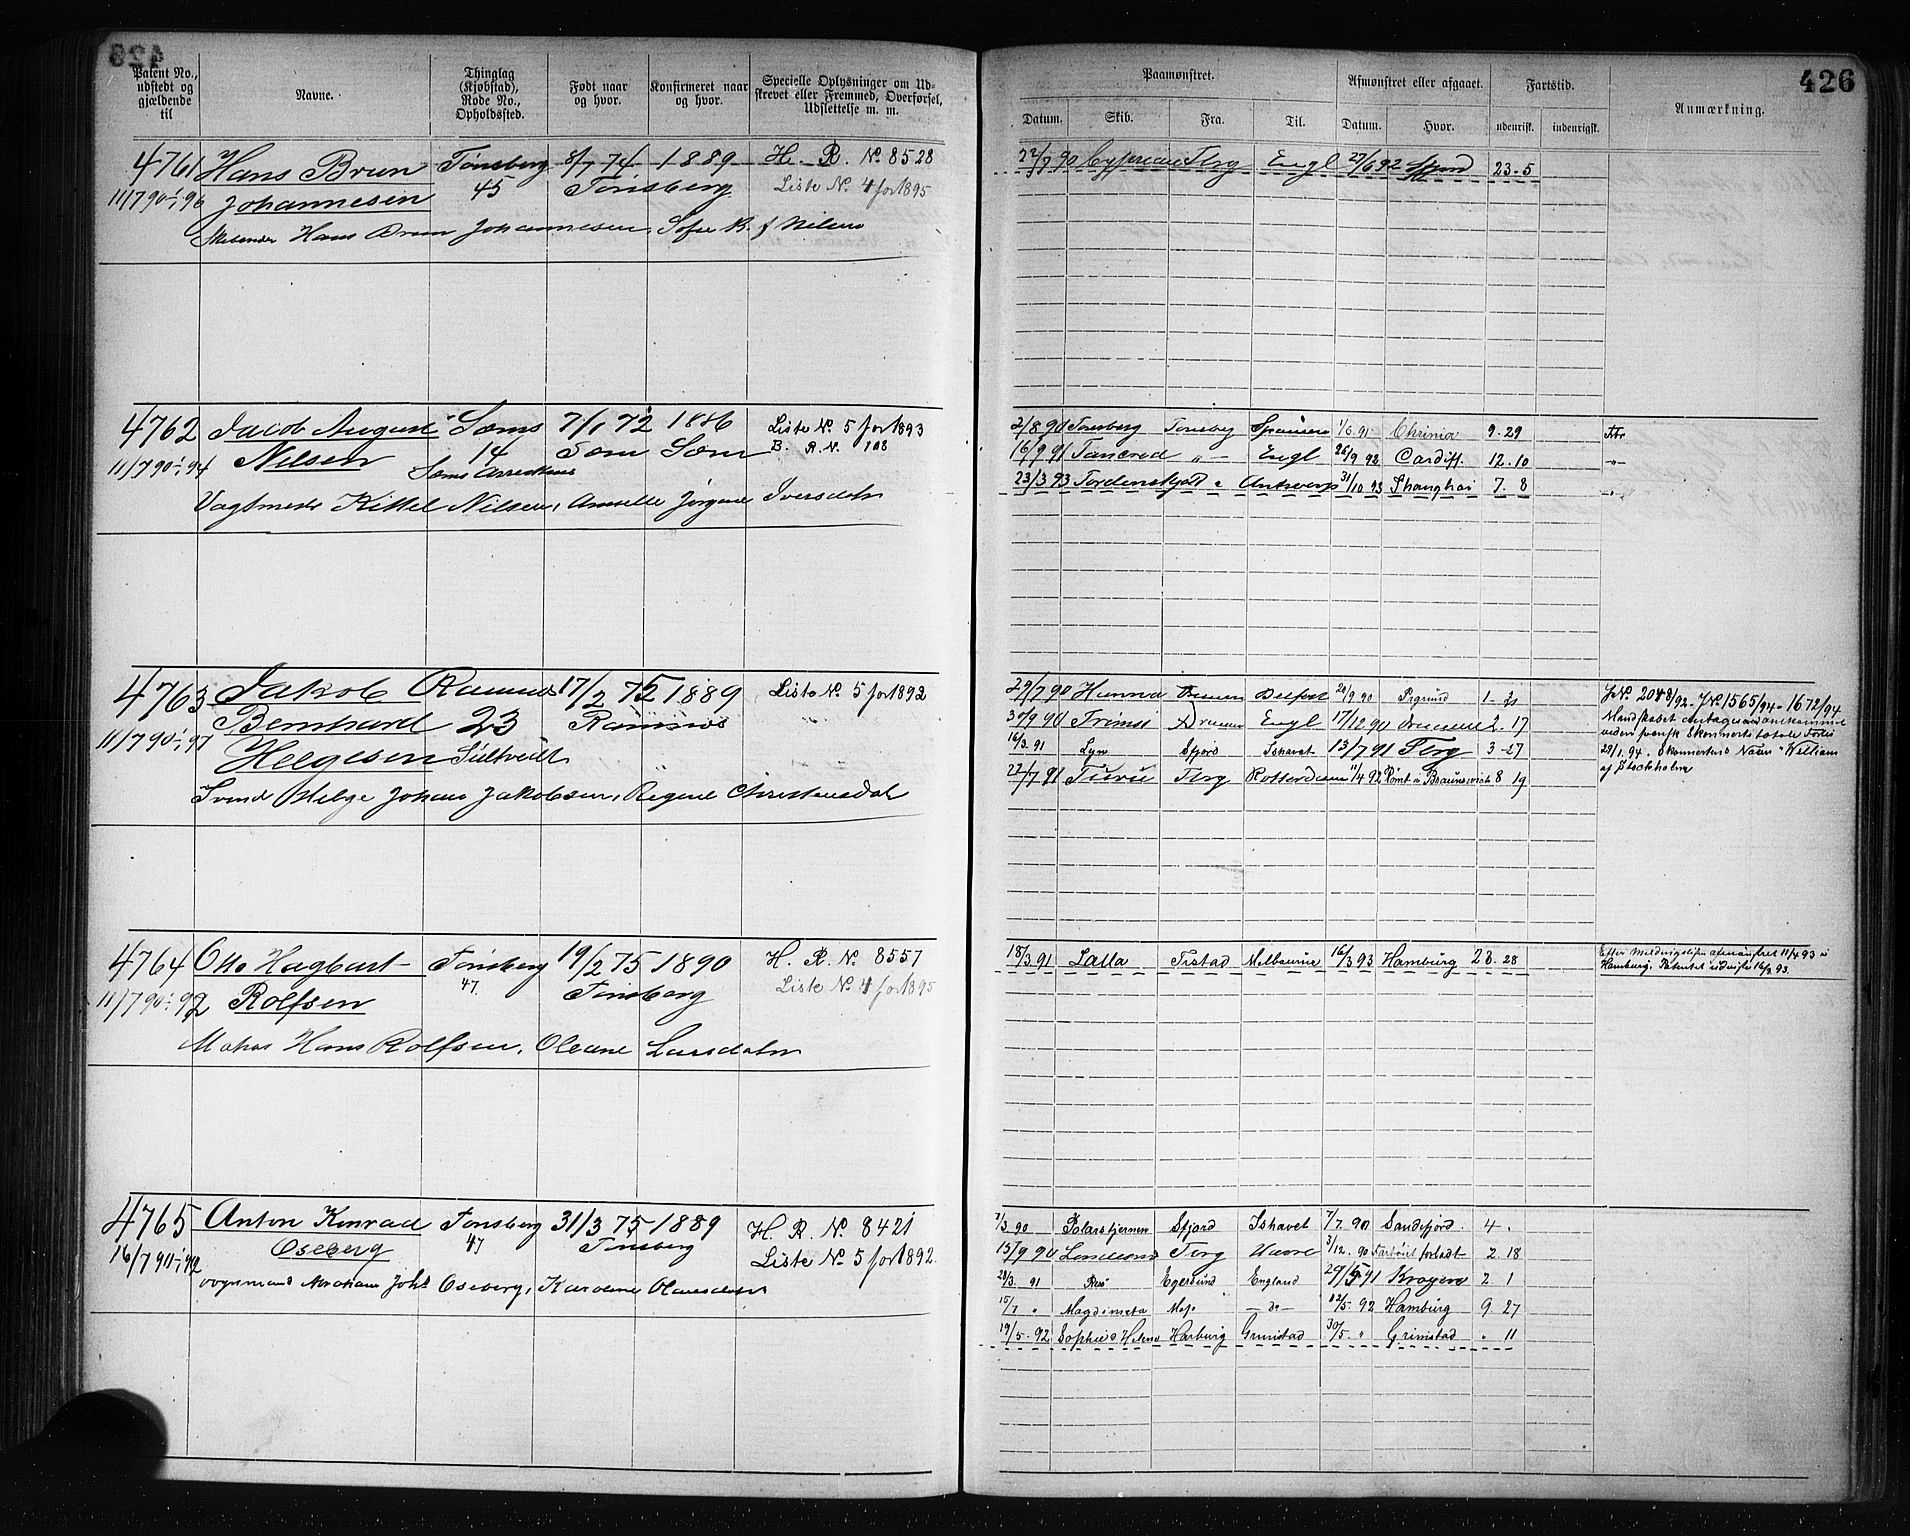 426
Patent No., udstedt og gjældende til
Navne.
Thinglag (Kjøbstad), Rode No., Opholdssted.
Født naar og hvor.
Konfirmeret naar og hvor.
Specielle Oplysninger om Udskrevet eller Fremmed, Overførsel, Udslettelse m. m.
Paamønstret.
Datum. Skib. Fra. Til.
Afmønstret eller afgaaet.
Datum. Hvor.
Fartstid.
udenrigsk. indenrigsk.
Anmærkning.
4761 Hans Brun Tønsberg 8/7 74 1889 H. R. No. 8528
11/7 90 1/1 96 Johannesen 45 Tønsberg Liste No. 4 for 1895
Hans Brun Johannesen, Sofie B. f Nilsen
22/7 90 Cyprian Tbrg Engl 27/6 92 Sfjord 23 . 5
4762 Jacob August Sæms 7/1 72 1886 Liste No. 5 for 1893
11/7 90 1/1 94 Nilsen 14 Sæm Sæm B. R. N. 108
Vagtmester Kittel Nilsen, Amalie Jørgine Iversdatr
2/8 90 Tønsberg Tønsbg Spanien 1/6 91 Chrinia 9 . 29
16/9 91 Tancred " — Engl 26/9 92 Cardiff. 12 . 10
23/3 93 Tordenskjold " Antwerp 31/10 93 Shanghai 7 . 8
4763 Jakob Ramnes 17/2 75 1889 Liste No. 5 for 1892
11/7 90 1/1 97 Bernhard 23 Ramnæs
Helgesen
Svend Helge Johans Jakobsen, Regine Christensdatr
29/7 90 Hanna Drammen Belfast 20/9 90 Prsgrund 1 -
30/9 90 Drammen Engl 17/12 90 Drammen 2 . 17
16/3 91 Lyn Sfjord Ishavet 13/7 91 Tbrg 3 - 27
22/7 91 Tbrg Rotterdam 11/4 92 Rømt i Braunsvick 8 19
J No. 2048/92 - J No 1565/94 - 1672/94
29/1 94. Skonnertens Navn "William"
af Stockholm
4764 Otto Hagbart Tønsberg 19/2 75 1890 H. R. No. 8557
11/7 90 1/1 92 Rolfsen 47 Tønsberg Liste No. 4 for 1895
Hans Rolfsen, Oleane Larsdatr
18/3 91 Lalla Fr.stad Melbourne 16/3 93 Hamburg 23 . 28
Hamburg. Patentet udvist 16/3 93.
4765 Anton Konrad Tønsberg 31/3 75 1889 H. R. No. 8421
16/7 90 1/1 92 Oseberg 47 Tønsberg Liste No. 5 for 1892.
Vognmand Abraham Johs Oseberg, Karoline Olausdatr
7/3 90 Polarstjernen Sfjord Ishavet 7/7 90 Sandefjord. 4 .
15/9 90 Tbrg Havre 3/12 90 Fartøiet forladt 2 18
28/3 91 Egersund England 29/5 91 Kragerø 2 1
15/7 " Mosj — do — 12/5 92 Hamburg 9 27
19/5 92 Sophie Helene Harburg Grimstad 30/5 " Grimstad " 11